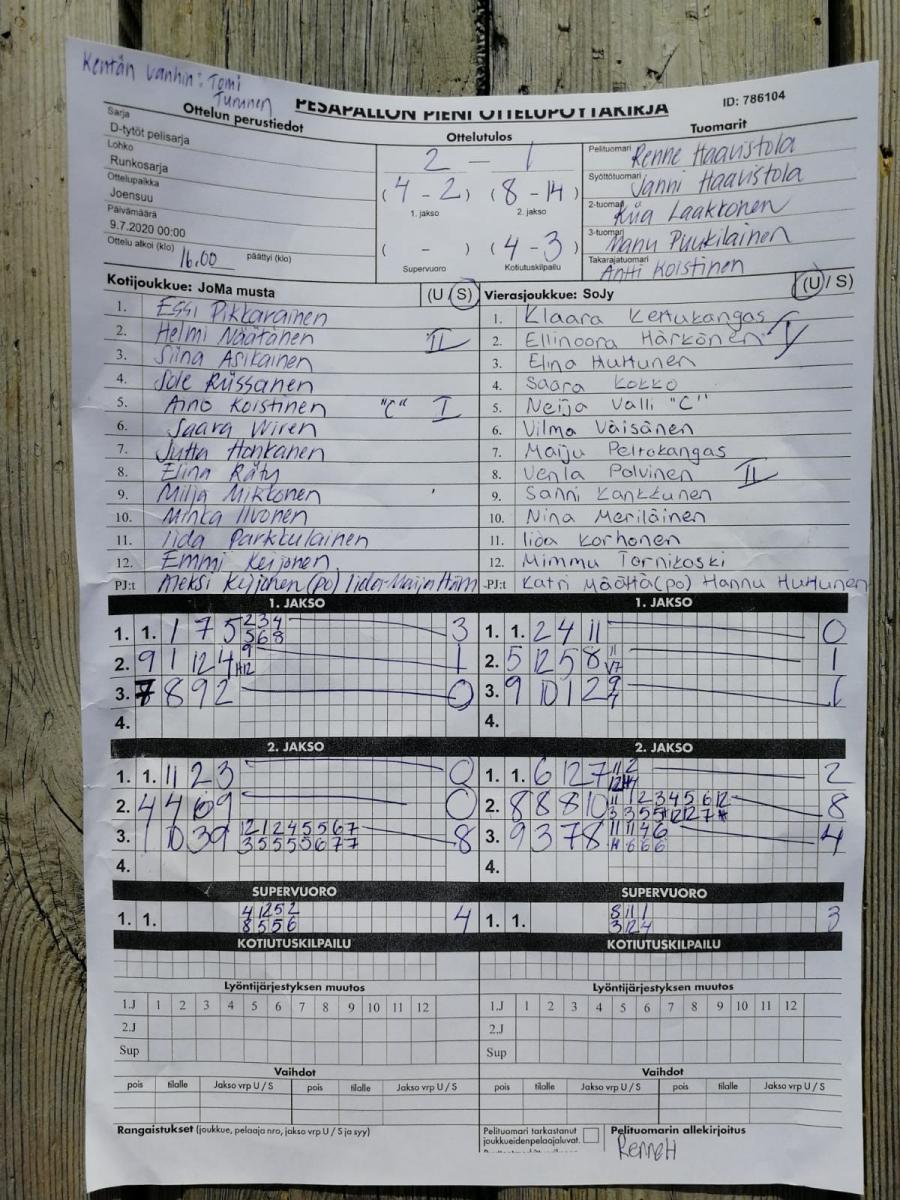 Kentän vanhin: Tomi
Turunen
PESÄPALLON PIENI OTTELUPÖYTÄKIRJA
ID: 786104
Ottelun perustiedot
Sarja
D-tytöt pelisarja
Lohko
Runkosarja
Ottelupaikka
Joensuu
Päivämäärä
9.7.2020 00:00
Ottelu alkoi (klo) 16.00 päättyi (klo)
Ottelutulos
2 - 1
(4 - 2) (8 - 14)
1. jakso 2. jakso
( - ) (4 - 3)
Supervuoro Kotiutuskilpailu
Tuomarit
Pelituomari Renne Haavistola
Syöttötuomari Janni Haavistola
2-tuomari Kiia Laakkonen
3-tuomari Manu Puukilainen
Takarajatuomari Antti Koistinen
Kotijoukkue: JoMa musta (U / S)
1. Essi Pikkarainen
2. Helmi Näätänen II
3. Siina Asikainen
4. Sole Riissanen
5. Aino Koistinen "C" I
6. Saara Wiren
7. Jutta Honkanen
8. Elina Räty
9. Milja Mikkonen
10. Minka Iivonen
11. Iida Parkkulainen
12. Emmi Keijonen
PJ:t Aleksi Keijonen (po) Iida-Maija
Vierasjoukkue: SoJy (U / S)
1. Klaara Kettukangas
2. Ellinoora Härkönen
3. Elina Huttunen
4. Saara Kokko
5. Neija Valli "C"
6. Vilma Väisänen
7. Maiju Peltokangas
8. Venla Polvinen II
9. Sanni Kankkunen
10. Nina Meriläinen
11. Iida Korhonen
12. Mimmu Tornikoski
PJ:t Katri Määttä (po) Hannu Huttunen
1. JAKSO
1. 1. 1 7 5 2 3 4 3
5 6 8
2. 9 1 12 4 9 1
3. 7 8 9 2 0
4.
1. JAKSO
1. 1. 2 4 11 0
2. 5 12 5 8 11 1
3. 9 10 12 9 1
4.
2. JAKSO
1. 1. 11 2 3 0
2. 4 4 6 9 0
3. 1 10 3 9 12 1 2 4 5 5 6 7 8
3 5 5 5 5 6 7 7
4.
2. JAKSO
1. 1. 6 12 7 11 2 2
2. 8 8 8 10 11 1 2 3 4 5 6 12 8
3. 9 3 7 8 11 11 4 6 4
4.
SUPERVUORO
1. 1. 4 12 5 2 4
8 5 5 6
SUPERVUORO
1. 1. 8 11 1 3
3 12 4
KOTIUTUSKILPAILU
KOTIUTUSKILPAILU
Lyöntijärjestyksen muutos
1.J 1 2 3 4 5 6 7 8 9 10 11 12
2.J
Sup
Lyöntijärjestyksen muutos
1.J 1 2 3 4 5 6 7 8 9 10 11 12
2.J
Sup
Vaihdot
pois tilalle Jakso vrp U / S pois tilalle Jakso vrp U / S
Vaihdot
pois tilalle Jakso vrp U / S pois tilalle Jakso vrp U / S
Rangaistukset (joukkue, pelaaja nro, jakso vrp U / S ja syy)
Pelituomari tarkastanut
joukkueidenpelaajaluvat.
Pelituomarin allekirjoitus
RenneH